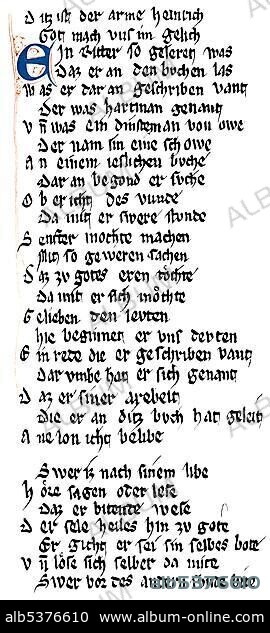 Ditz ist der arme heinrich
Got mach vns im gelich
Ein Ritter so geleret was
Daz er an den bvchen las
Was er dar an geschriben vant
Der was hartman genant
Vñ was ein dinstman von owe
Der nam sin eine schowe
An einem ieslichen bvche
Dar an begond er svche
Ob er icht des vunde
Da mit er swere stvnde
Senfter mochte machen
Mit so geweren sachen
Daz zv gotes eren tochte
Da mit er sich mochte
Gelieben den levten
hie beginnet er vns devten
Ein rede die er geschriben vant
Dar vmbe hat er sich genant
Daz er siner arebeit
Die er an ditz bvch hat geleit
Ane lon icht belibe
Swer iz nach sinem libe
hore sagen oder lese
Daz er bitende wese
Der sele heiles hin zv gote
Er gicht er sei sin selbes bote
Vñ löse sich selber da mite
Swer vor des andern schvlde bite
ALBUM
alb5376610
alb5376610 - www.album-online.com